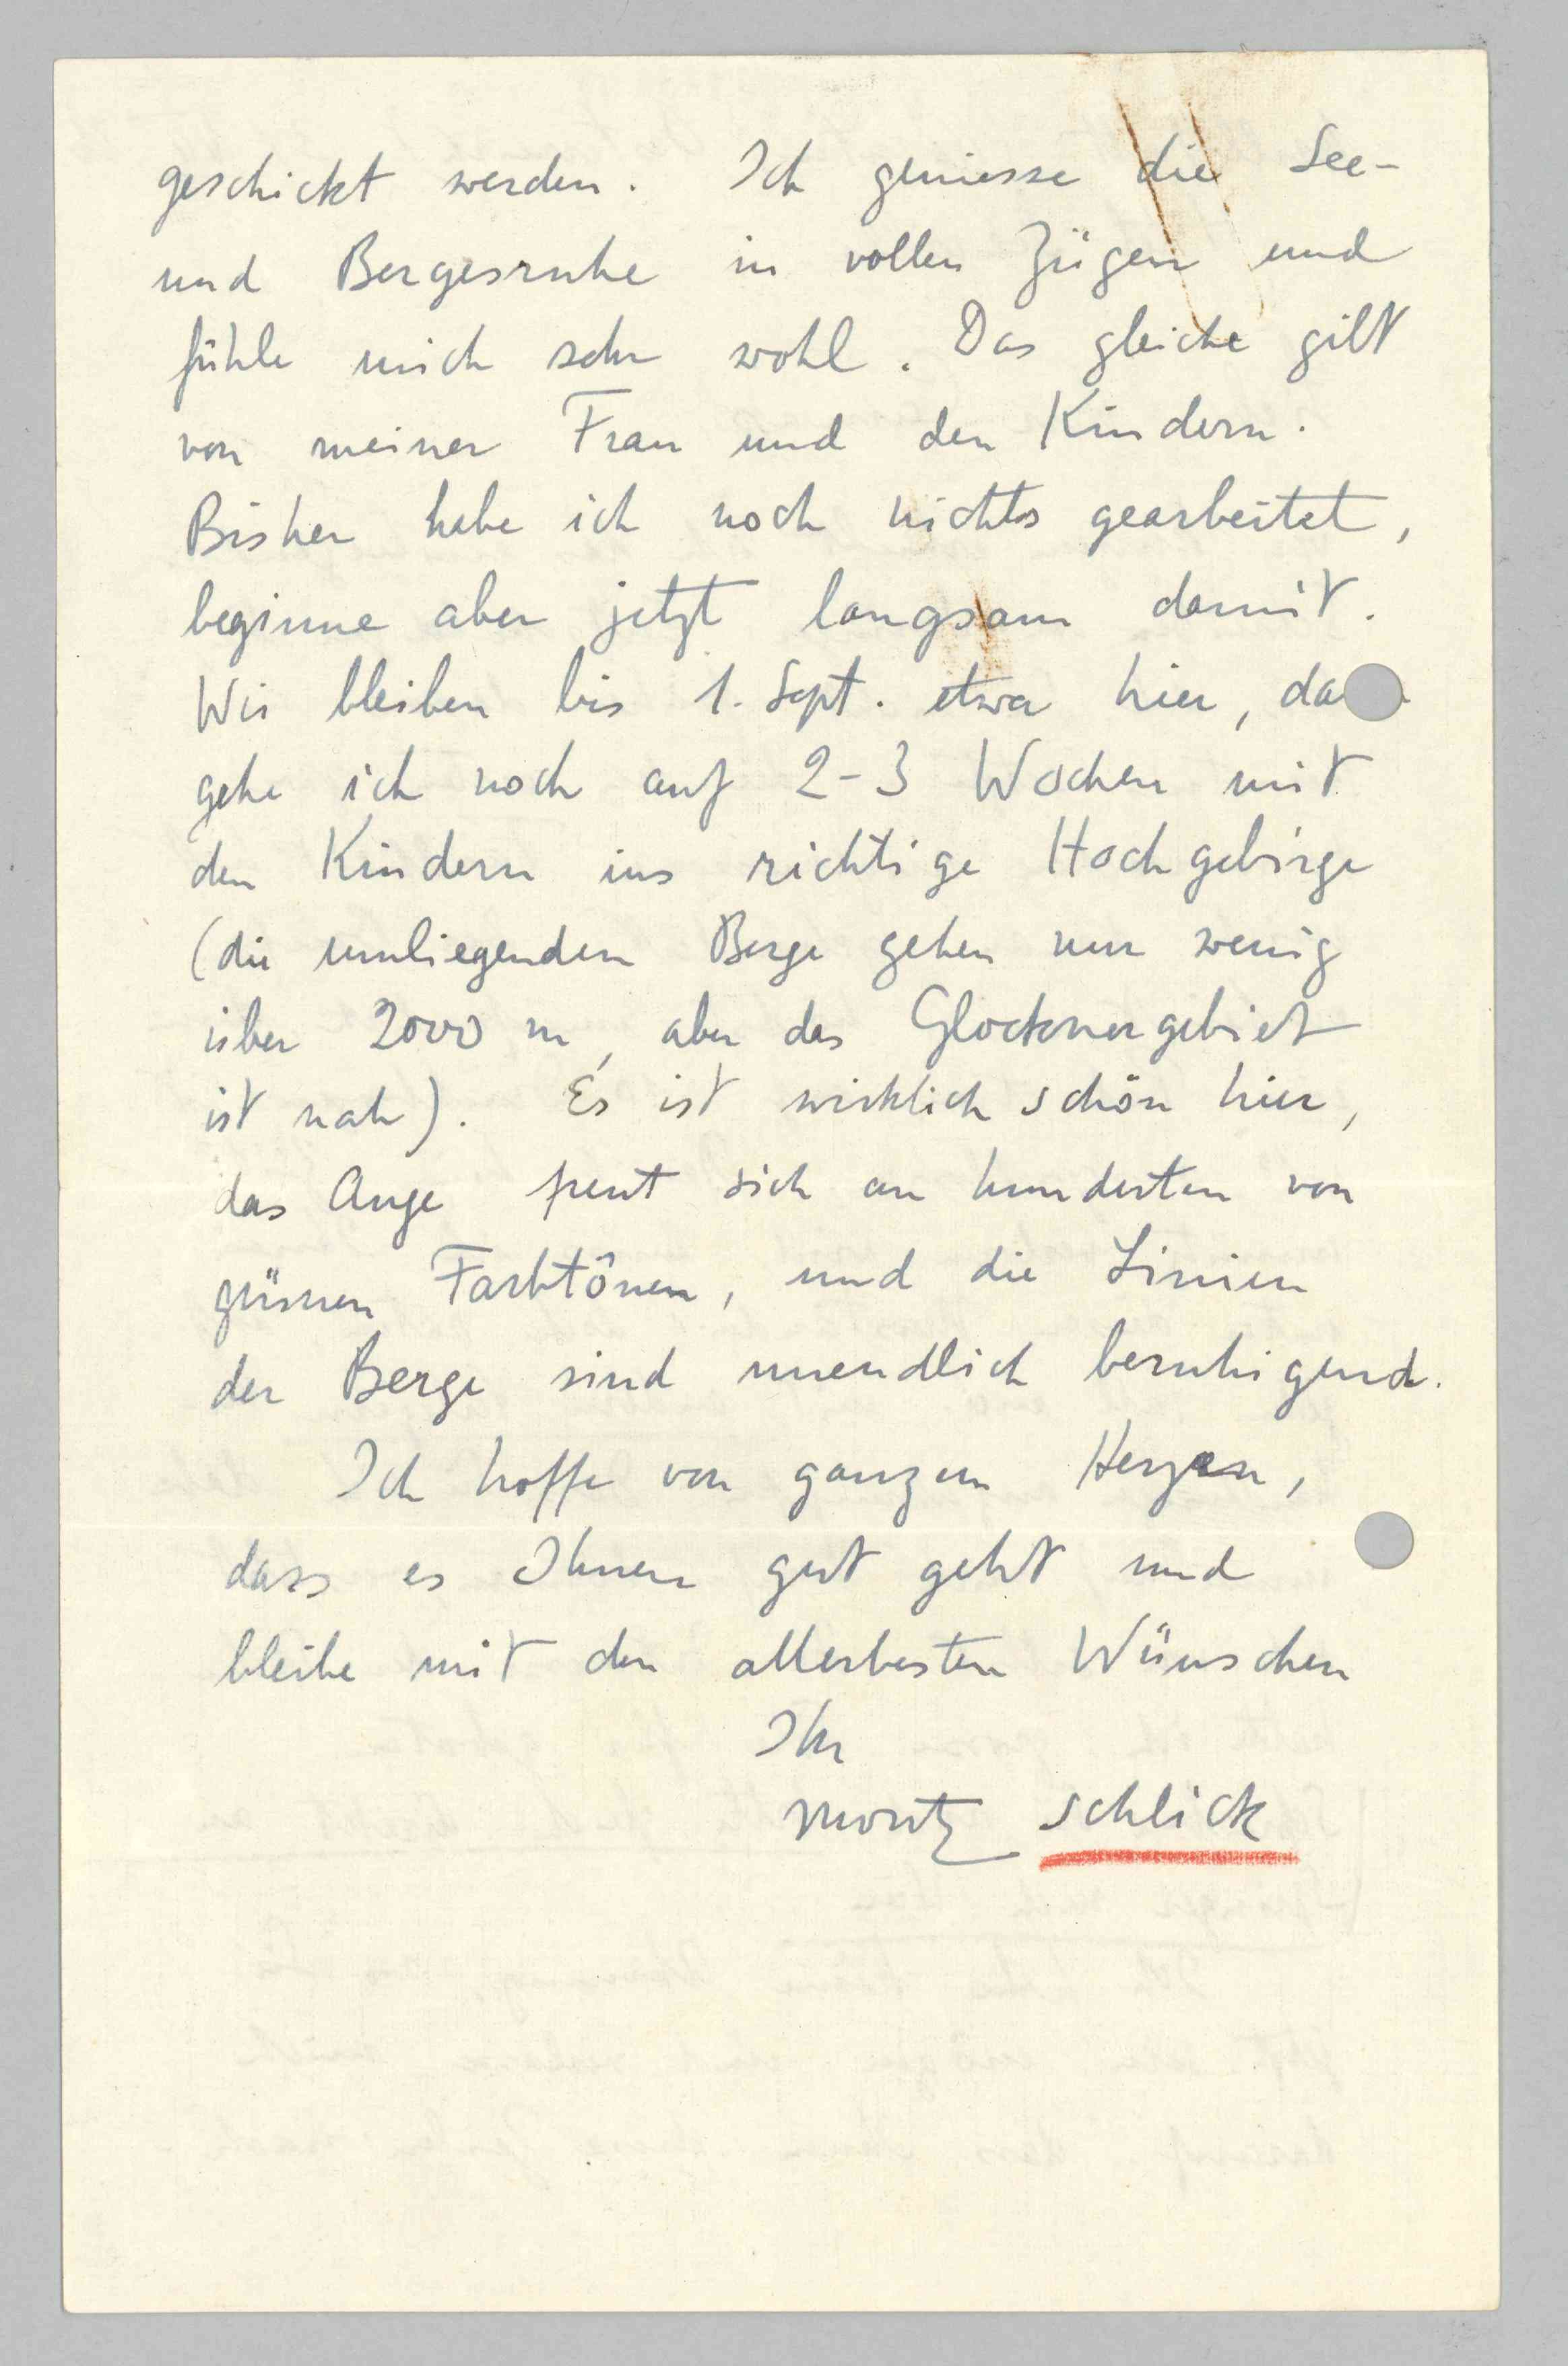 geschickt werden. Ich geniesse die See-
und Bergesruhe in vollen Zügen und
fühle mich sehr wohl. Das gleiche gilt
von meiner Frau und den Kindern.
Bisher habe ich noch nichts gearbeitet,
beginne aber jetzt langsam damit.
Wir bleiben bis 1. Sept. etwa hier, da
gehe ich noch auf 2-3 Wochen mit
den Kindern ins richtige Hochgebirge
(die umliegenden Berge gehen nur wenig
über 2000 m, aber das Glocknergebiet
ist nah). Es ist wirklich schön hier,
das Auge freut sich an hunderten von
grünen Farbtönen, und die Linien
der Berge sind unendlich beruhigend.
Ich hoffe von ganzem Herzen,
dass es Ihnen gut geht und
bleibe mit den allerbesten Wünschen
Ihr
Moritz Schlick